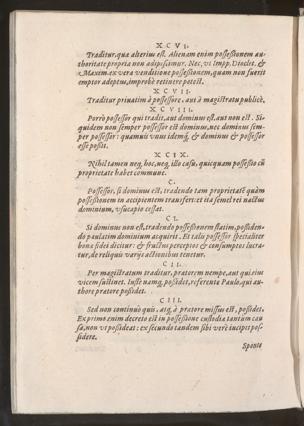 XCVI.
Traditur, quæ alterius est. Alienam enim possessionem au-
thoritate propria non adipiscimur. Nec, vt Impp. Dioclet. &
Maxim. ex vera venditione possessionem, quam non fuerit
emptor adeptus, improbè retinere potest.
XCVII.
Traditur priuatim à possessore, aut à magistratu publicè.
XCVIII.
Porrò possessor qui tradit, aut dominus est, aut non est. Si-
quidem non semper possessor est dominus, nec dominus sem-
per possessor: quamuis vnus idemq́, & dominus & possessor
esse possit.
XCIX.
Nihil tamen neq, hoc, neq, illo casu, quicquam possessio cū
proprietate habet commune.
C.
Possessor, si dominus est, tradendo tam proprietatē quàm
possessionem in accipientem transfert: et ita semel rei nactus
dominium, vsucapio cessat.
CI.
Si dominus non est, tradendo possessionem statim, possiden-
do paulatim dominium acquirit. Et talis possessor specialiter
bonæ fidei dicitur: & fructus perceptos & consumptos lucra-
tur, de reliquis varijs actionibus tenetur.
CII.
Per magistratum traditur, prætorem nempe, aut qui eius
vicem sustinet. Iustè namq, possidet, referente Paulo, qui au-
thore prætore possidet.
CIII.
Sed non continuò quis, atq, à prætore missus est, possidet.
Ex primo enim decreto est in possessione custodiæ tantum cau
sa, non vt possideat: ex secundo tandem sibi verè incipit pos-
sidere.
Sponte